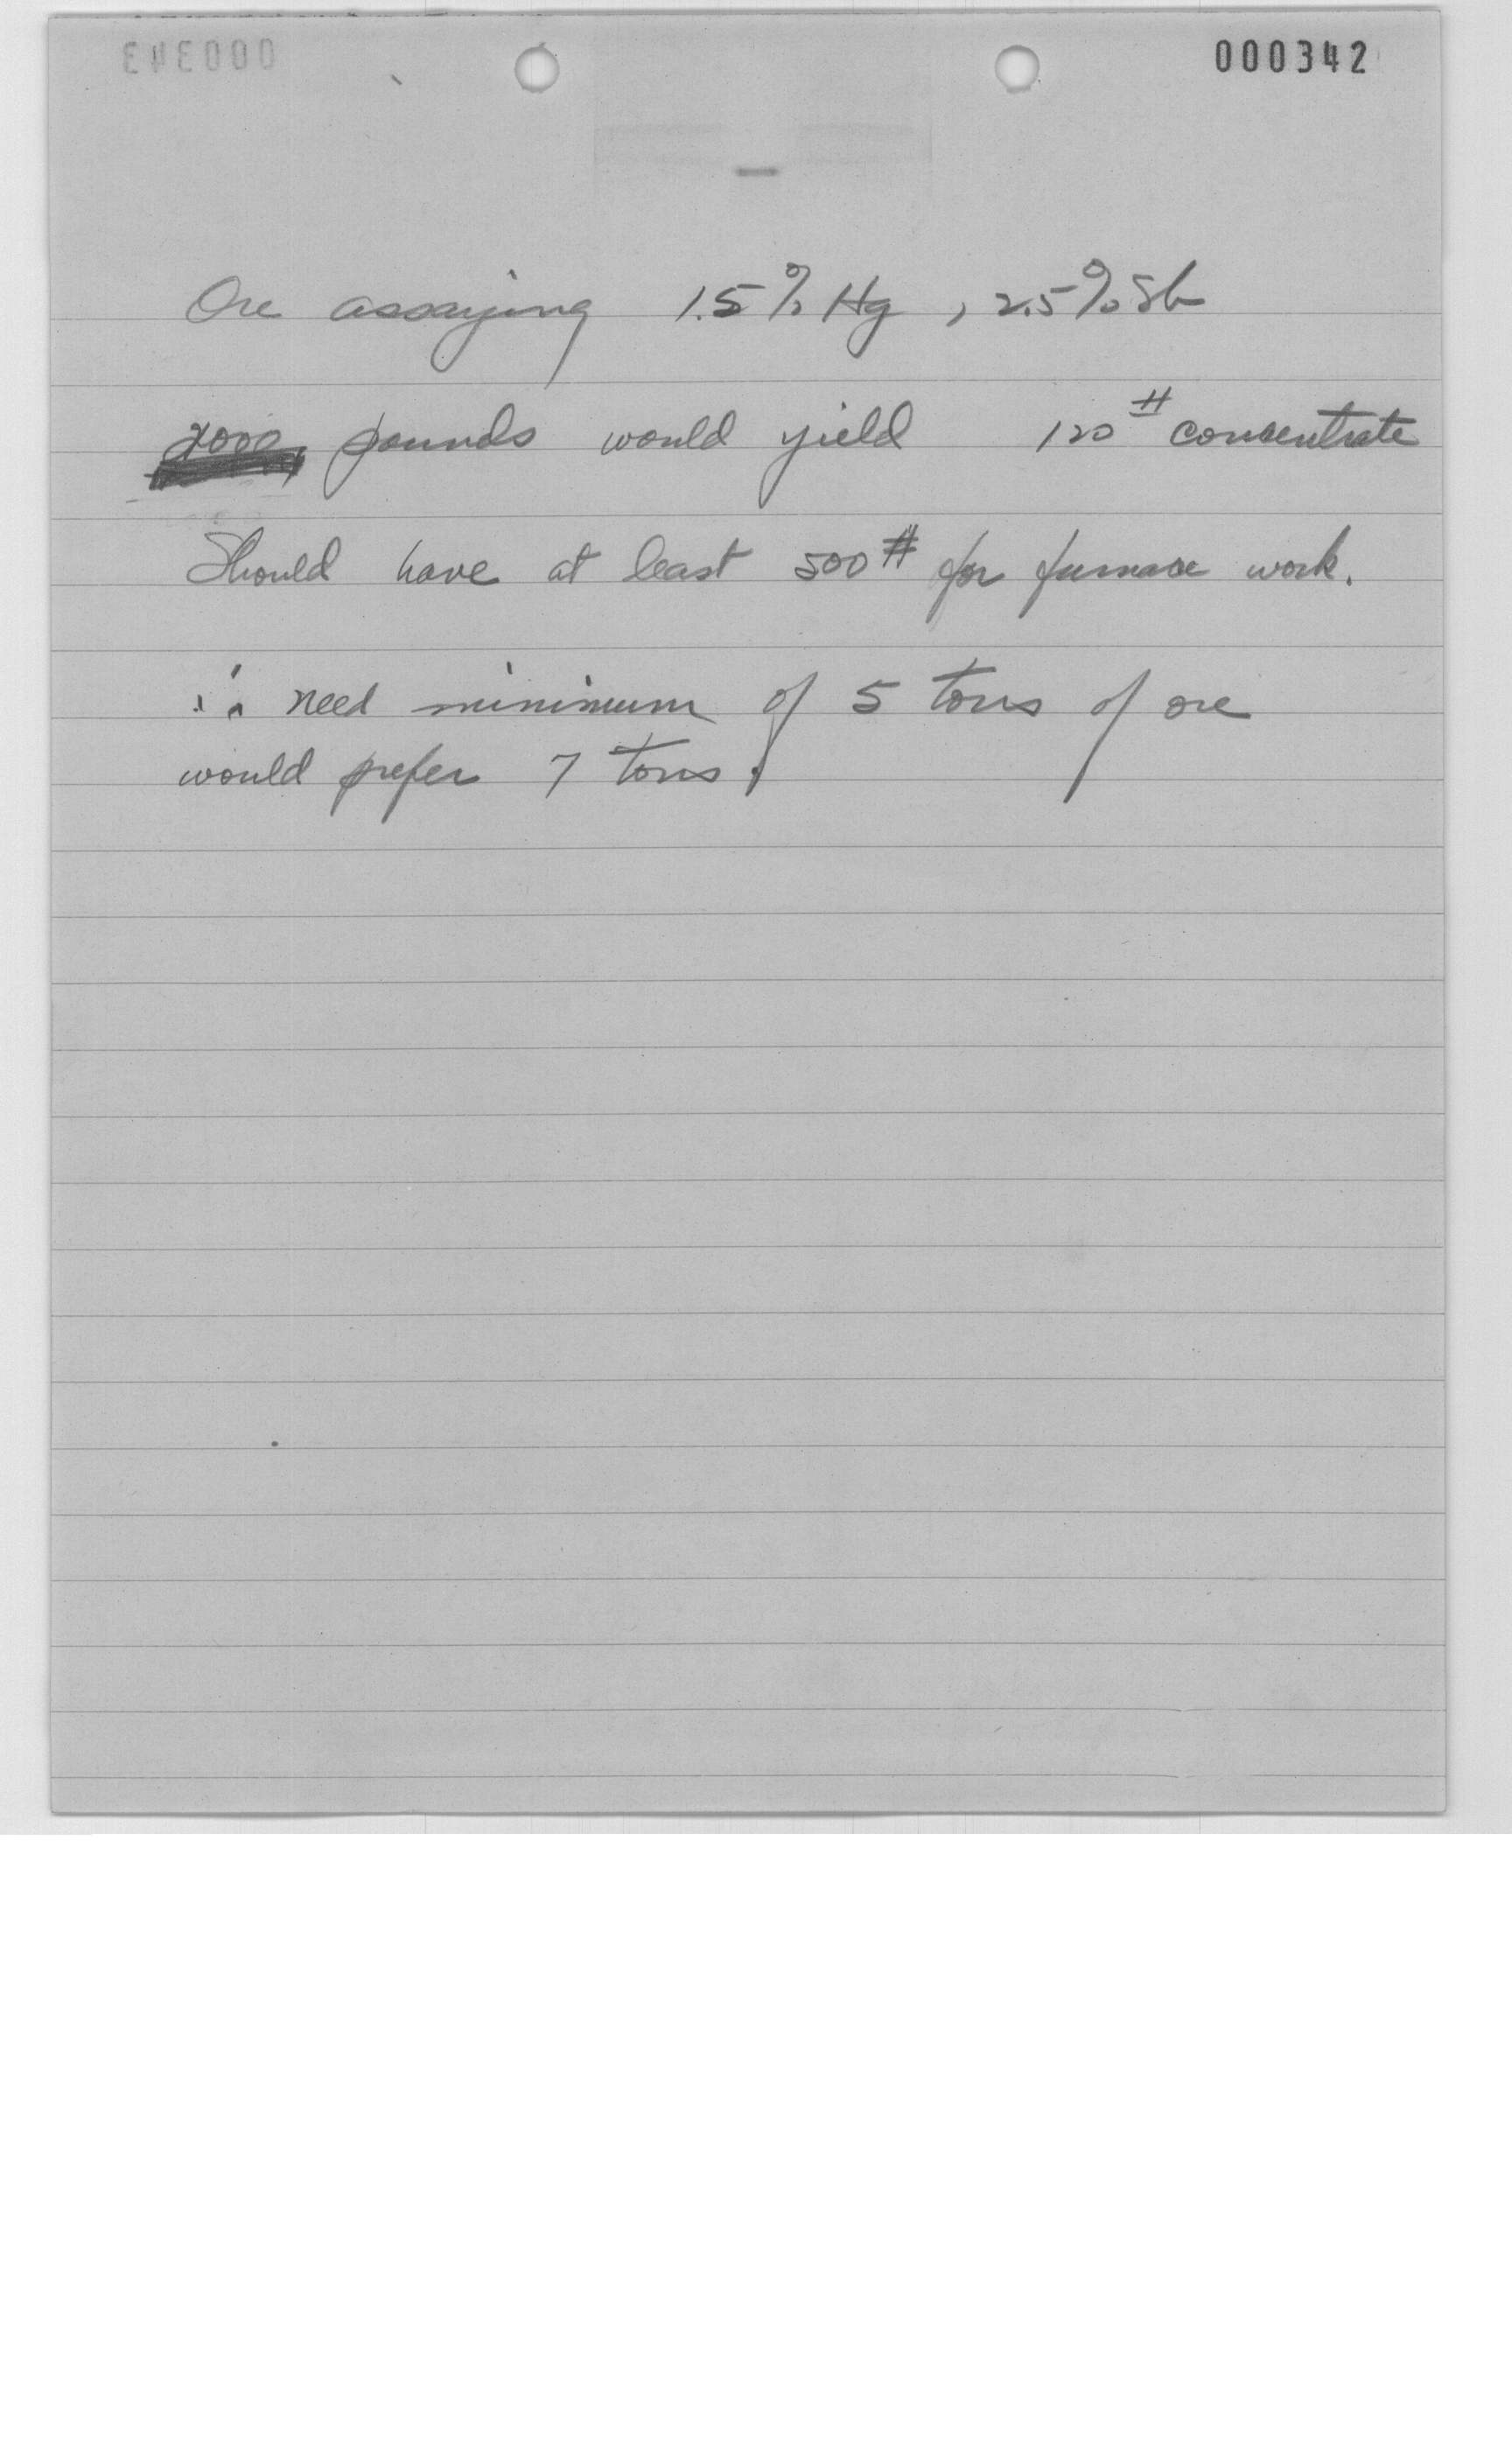 000342
Ore assaying 1.5% Hg, 2.5% Sb
2000 pounds would yield 120# concentrate
Should have at least 500# for furnace work.
∴ need minimum of 5 tons of ore
would prefer 7 tons.